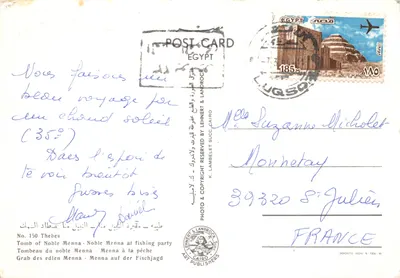 POST CARD
EGYPT
EGYPT
مصر
185
١٨٥
LUQSOR
Nous faisons un
beau voyage par
un chaud soleil
(35°)
Dans l'espoir de
te voir bientôt
Grosses bises
David
Melle Suzanne Micholet
Monnetay
39320 St Julien
FRANCE
PHOTO & COPYRIGHT RESERVED BY LEHNERT & LANDROCK
K. LAMBELET SUCC. CAIRO
No. 150 Thebes
Tomb of Noble Menna - Noble Menna at fishing party
Tombeau du noble Menna - Menna à la pêche
Grab des edlen Menna - Menna auf der Fischjagd
LEHNERT & LANDROCK
ART PUBLISHERS